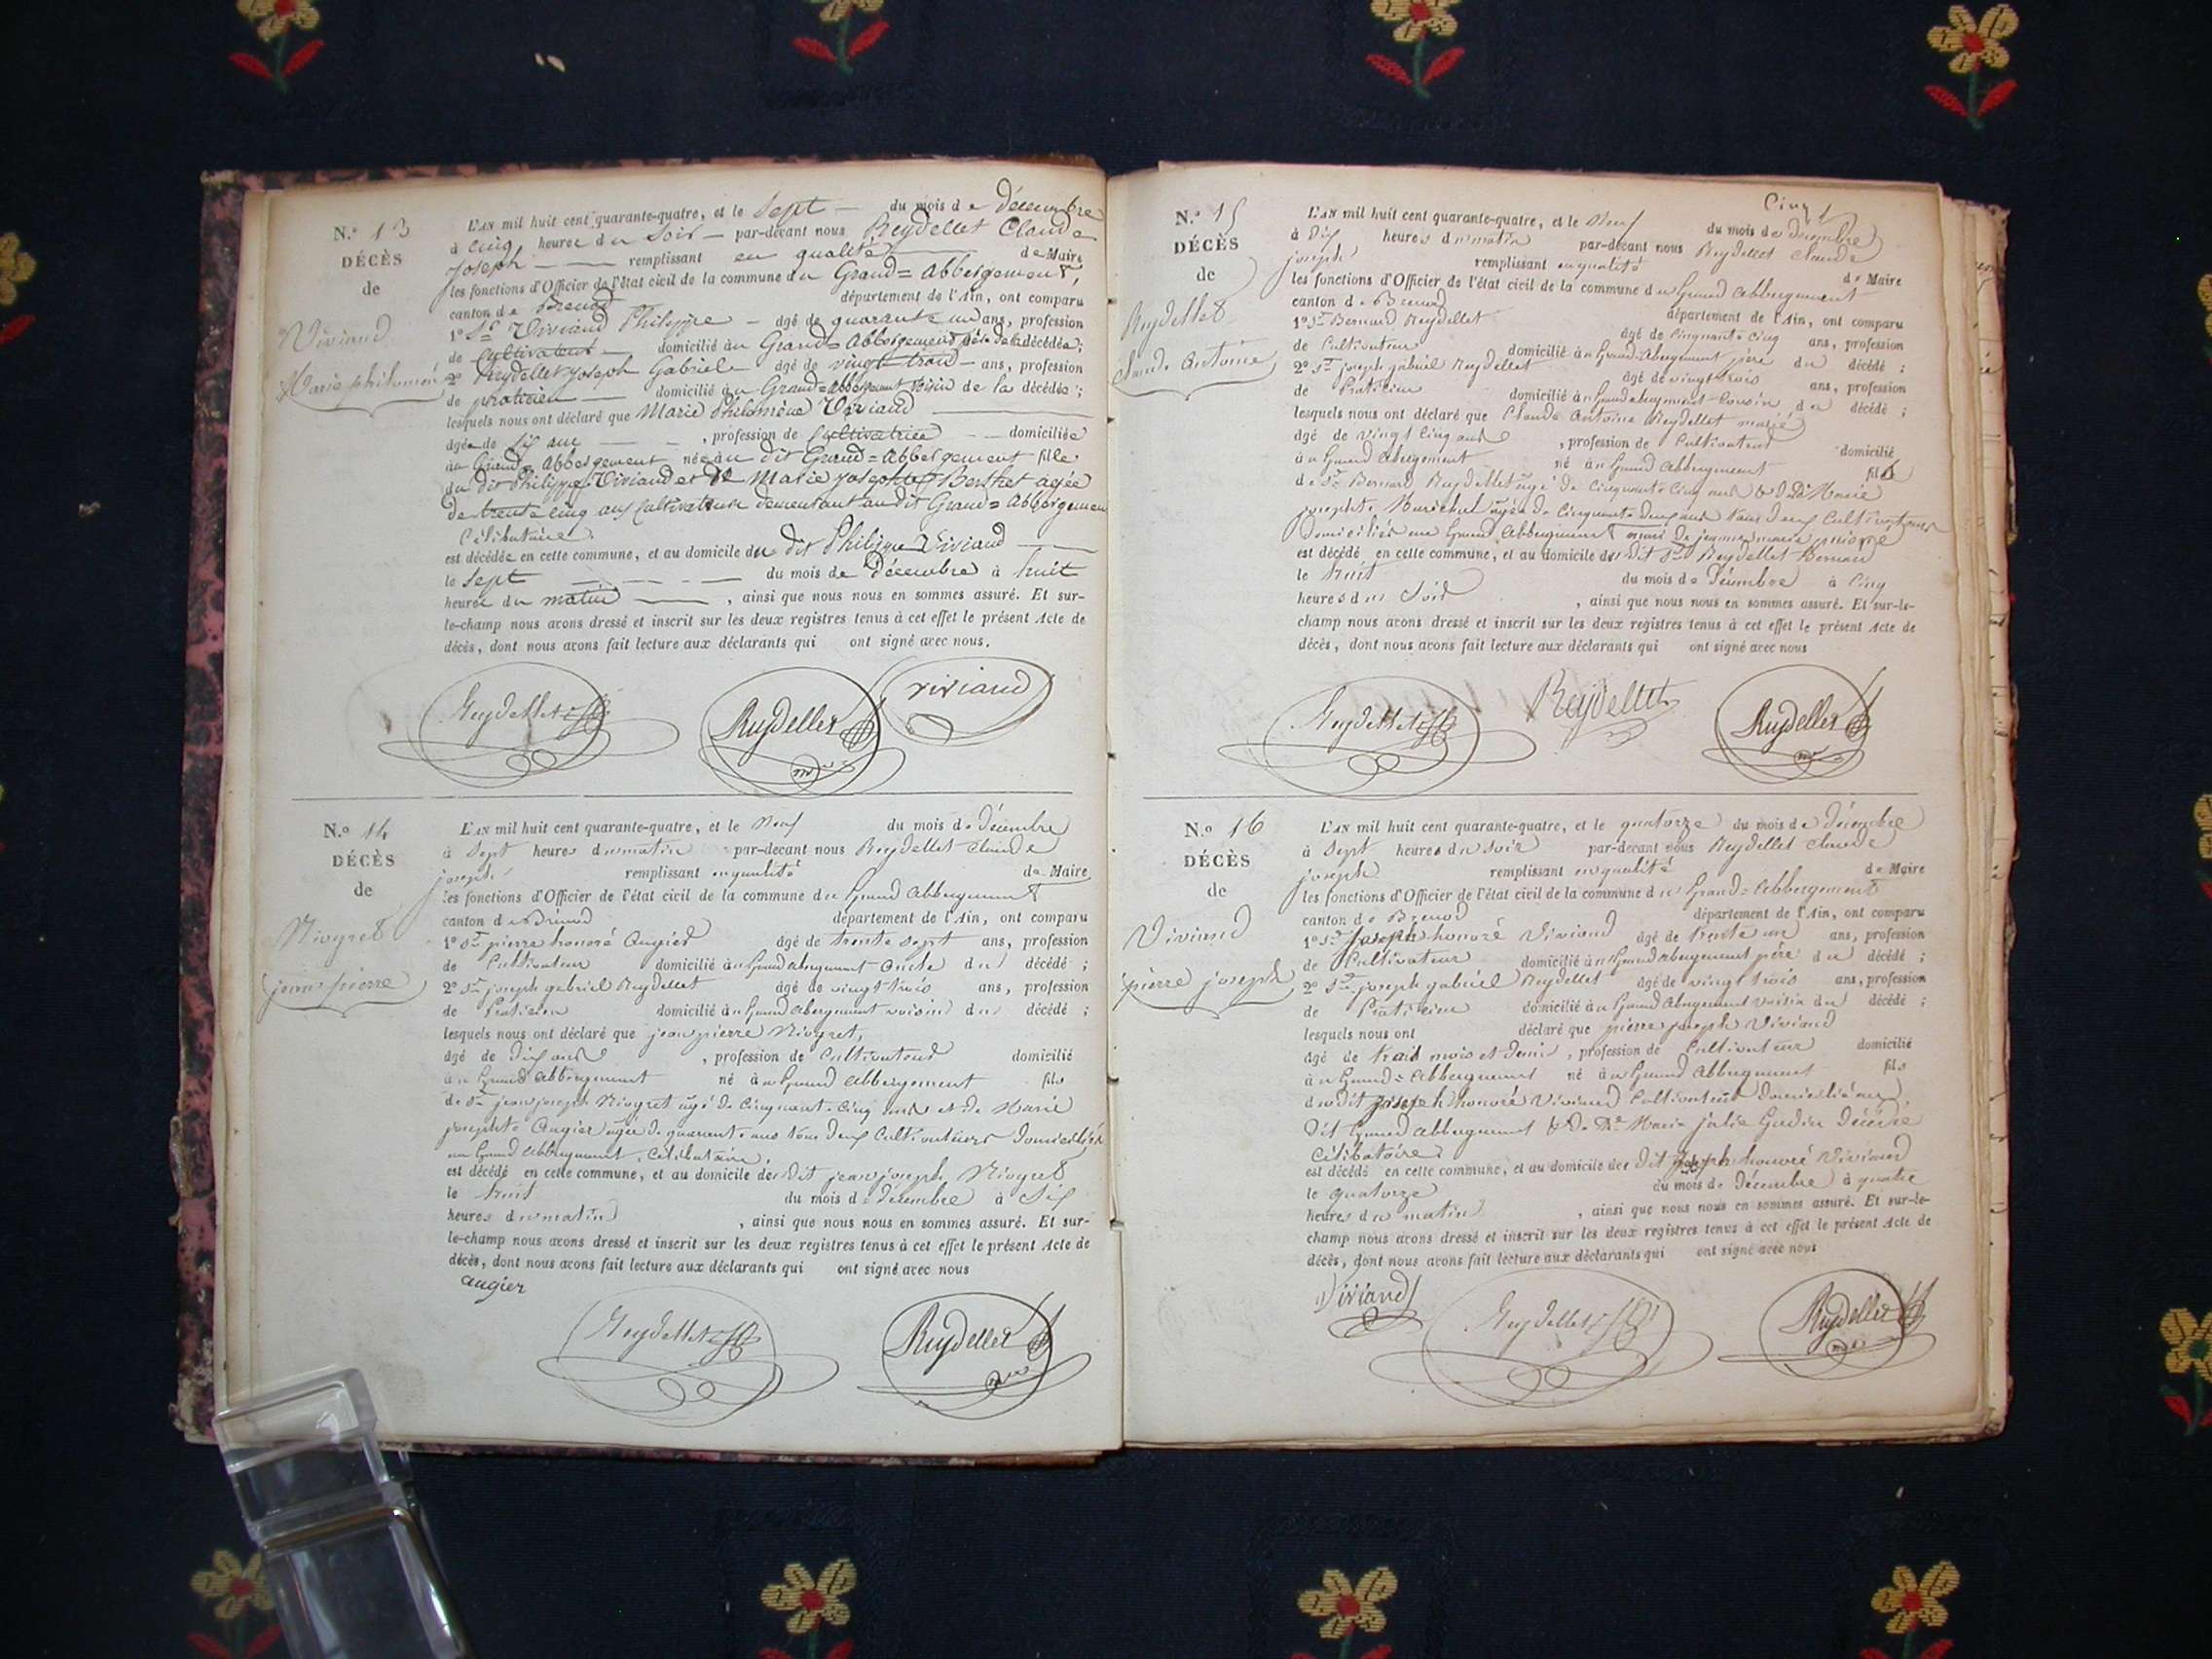 N.º 13
DÉCÈS
de
Viviand
Marie philomène
L'AN mil huit cent quarante-quatre, et le Sept du mois de décembre
à cinq heures du Soir par-devant nous Reydellet Claude
Joseph remplissant en qualité de Maire
les fonctions d'Officier de l'état civil de la commune du Grand=Abbergement,
canton de Brenod département de l'Ain, ont comparu
1º Sr Viviand Philippe âgé de quarante un ans, profession
de Cultivateur domicilié au Grand=Abbergement père de la décédée;
2º Reydellet Joseph Gabriel âgé de vingt trois ans, profession
de praticien domicilié au Grand=Abbergement voisin de la décédée;
lesquels nous ont déclaré que Marie Philomène Viviand
âgée de six ans, profession de Cultivatrice domiciliée
au Grand=Abbergement née au dit Grand=Abbergement fille
du dit Philippe Viviand et de Marie Josephte Berthet agée
de trente cinq ans Cultivateurs demeurant au dit Grand=Abbergement
Célibataire.
est décédée en cette commune, et au domicile du dit Philippe Viviand
le Sept du mois de Décembre à huit
heures du matin, ainsi que nous nous en sommes assuré. Et sur-
le-champ nous avons dressé et inscrit sur les deux registres tenus à cet effet le présent Acte de
décès, dont nous avons fait lecture aux déclarants qui ont signé avec nous.
Reydellet Reydellet viviand
N.º 14
DÉCÈS
de
Nivyret
jean pierre
L'AN mil huit cent quarante-quatre, et le Neuf du mois de décembre
à Sept heures du matin par-devant nous Reydellet Claude
joseph remplissant en qualité de Maire
les fonctions d'Officier de l'état civil de la commune du Grand Abbergement
canton de Brénod département de l'Ain, ont comparu
1º Sr pierre honoré Augier âgé de trente sept ans, profession
de Cultivateur domicilié au Grand abergement oncle du décédé;
2º Sr joseph gabriel Reydellet âgé de vingt trois ans, profession
de Praticien domicilié au Grand abergement voisin du décédé;
lesquels nous ont déclaré que jean pierre Nivyret,
âgé de dix ans, profession de Cultivateur domicilié
au Grand Abbergement né au Grand Abbergement fils
de Sr jean joseph Nivyret agé de Cinquante Cinq ans et de Marie
josephte Augier agée de quarante ans tous deux Cultivateurs domiciliés
au Grand Abbergement. Célibataire.
est décédé en cette commune, et au domicile du dit jean joseph Nivyret
le huit du mois de décembre à Six
heures du matin, ainsi que nous nous en sommes assuré. Et sur-
le-champ nous avons dressé et inscrit sur les deux registres tenus à cet effet le présent Acte de
décès, dont nous avons fait lecture aux déclarants qui ont signé avec nous
augier
Reydellet Reydellet
Cinq
N.º 15
DÉCÈS
de
Reydellet
Claude Antoine
L'AN mil huit cent quarante-quatre, et le Neuf du mois de décembre
à Dix heures du matin par-devant nous Reydellet Claude
joseph remplissant en qualité de Maire
les fonctions d'Officier de l'état civil de la commune du Grand Abbergement
canton de Brenod département de l'Ain, ont comparu
1º Sr Bernard Reydellet âgé de Cinquante Cinq ans, profession
de Cultivateur domicilié au Grand-Abergement père du décédé;
2º Sr joseph gabriel Reydellet âgé de vingt trois ans, profession
de Praticien domicilié au Grand abergement Cousin du décédé;
lesquels nous ont déclaré que Claude Antoine Reydellet marié
âgé de vingt Cinq ans, profession de Cultivateur domicilié
au Grand Abergement né au Grand Abbergement fils
de Sr Bernard Reydellet agé de Cinquante Cinq ans & de De Marie
josephte agée de Cinquante deux ans tous deux Cultivateurs
Domiciliés au Grand Abbergement mari de jeanne marie
est décédé en cette commune, et au domicile du dit Sr Reydellet Bernard
le huit du mois de Décembre à Cinq
heures du Soir, ainsi que nous nous en sommes assuré. Et sur-le-
champ nous avons dressé et inscrit sur les deux registres tenus à cet effet le présent Acte de
décès, dont nous avons fait lecture aux déclarants qui ont signé avec nous
Reydellet Reydellet Reydellet
N.º 16
DÉCÈS
de
Viviand
pierre joseph
L'AN mil huit cent quarante-quatre, et le quatorze du mois de décembre
à Sept heures du soir par-devant nous Reydellet Claude
joseph remplissant en qualité de Maire
les fonctions d'Officier de l'état civil de la commune du Grand=Abbergement
canton de Brenod département de l'Ain, ont comparu
1º Sr Joseph honoré Viviand âgé de trente un ans, profession
de Cultivateur domicilié au Grand abergement père du décédé;
2º Sr joseph gabriel Reydellet âgé de vingt trois ans, profession
de Praticien domicilié au Grand Abergement voisin du décédé;
lesquels nous ont déclaré que pierre joseph Viviand
âgé de trois mois et demi, profession de Cultivateur domicilié
au Grand=Abbergement né au Grand Abbergement fils
du dit joseph honoré Viviand Cultivateur domicilié au
dit Grand Abbergement & de De Marie julie Décédée
Célibataire
est décédé en cette commune, et au domicile du dit joseph honoré Viviand
le quatorze du mois de décembre à quatre
heures du matin, ainsi que nous nous en sommes assuré. Et sur-le-
champ nous avons dressé et inscrit sur les deux registres tenus à cet effet le présent Acte de
décès, dont nous avons fait lecture aux déclarants qui ont signé avec nous
Viviand Reydellet Reydellet